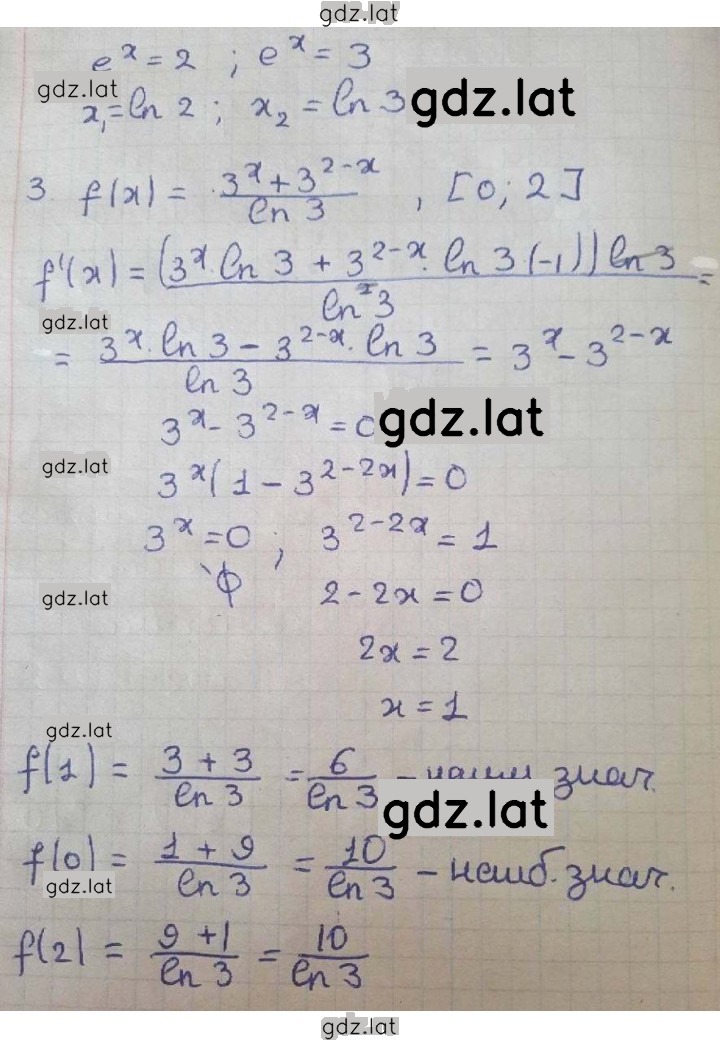 gdz.lat
eˣ = 2 ; eˣ = 3
gdz.lat
x₁ = ln 2 ; x₂ = ln 3
gdz.lat
3. f(x) = (3ˣ + 3²⁻ˣ) / ln 3 , [0; 2]
f'(x) = ((3ˣ · ln 3 + 3²⁻ˣ · ln 3 (-1)) ln 3) / ln² 3 =
gdz.lat
= (3ˣ · ln 3 - 3²⁻ˣ · ln 3) / ln 3 = 3ˣ - 3²⁻ˣ
3ˣ - 3²⁻ˣ = 0
gdz.lat
gdz.lat
3ˣ(1 - 3²⁻²ˣ) = 0
3ˣ = 0 ; 3²⁻²ˣ = 1
gdz.lat
ϕ 2 - 2x = 0
2x = 2
x = 1
gdz.lat
f(1) = (3 + 3) / ln 3 = 6 / ln 3 - знач.
gdz.lat
f(0) = (1 + 9) / ln 3 = 10 / ln 3 - наиб. знач.
gdz.lat
f(2) = (9 + 1) / ln 3 = 10 / ln 3
gdz.lat